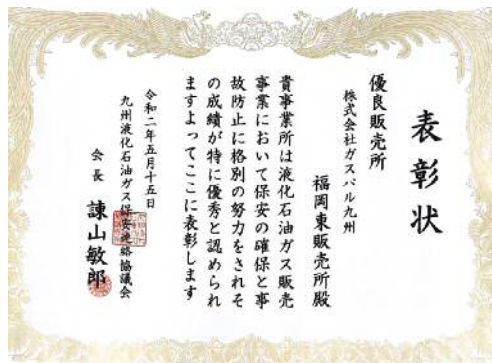 表彰状
優良販売所
株式会社ガスパル九州
福岡東販売所殿
貴事業所は液化石油ガス販売
事業において保安の確保と事
故防止に格別の努力をされそ
の成績が特に優秀と認められ
ますよってここに表彰します
令和二年五月十五日
九州液化石油ガス保安連絡協議会
会長 諌山敏郎